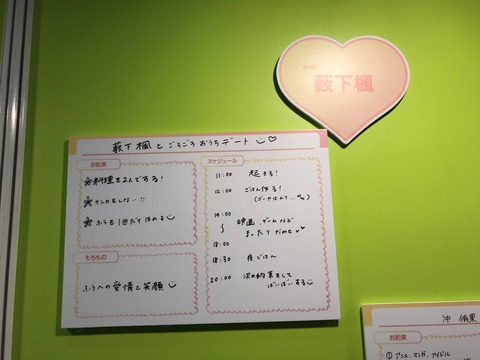 薮下楓
薮下楓とごろごろおうちデート
お約束
料理を2人でする!
ケンカをしない!!
ふうを1回だけほめる
もちもの
ふうへの愛情と笑顔
スケジュール
11:00 起きる!
12:00 ごはん作る!
14:00
〜
18:00
映画、ゲームなど
まったりtime
18:30 夜ごはん
20:00 次の約束をして
ばいばいする
沖 侑果
お約束
① アニメ、マンガ、アイドル